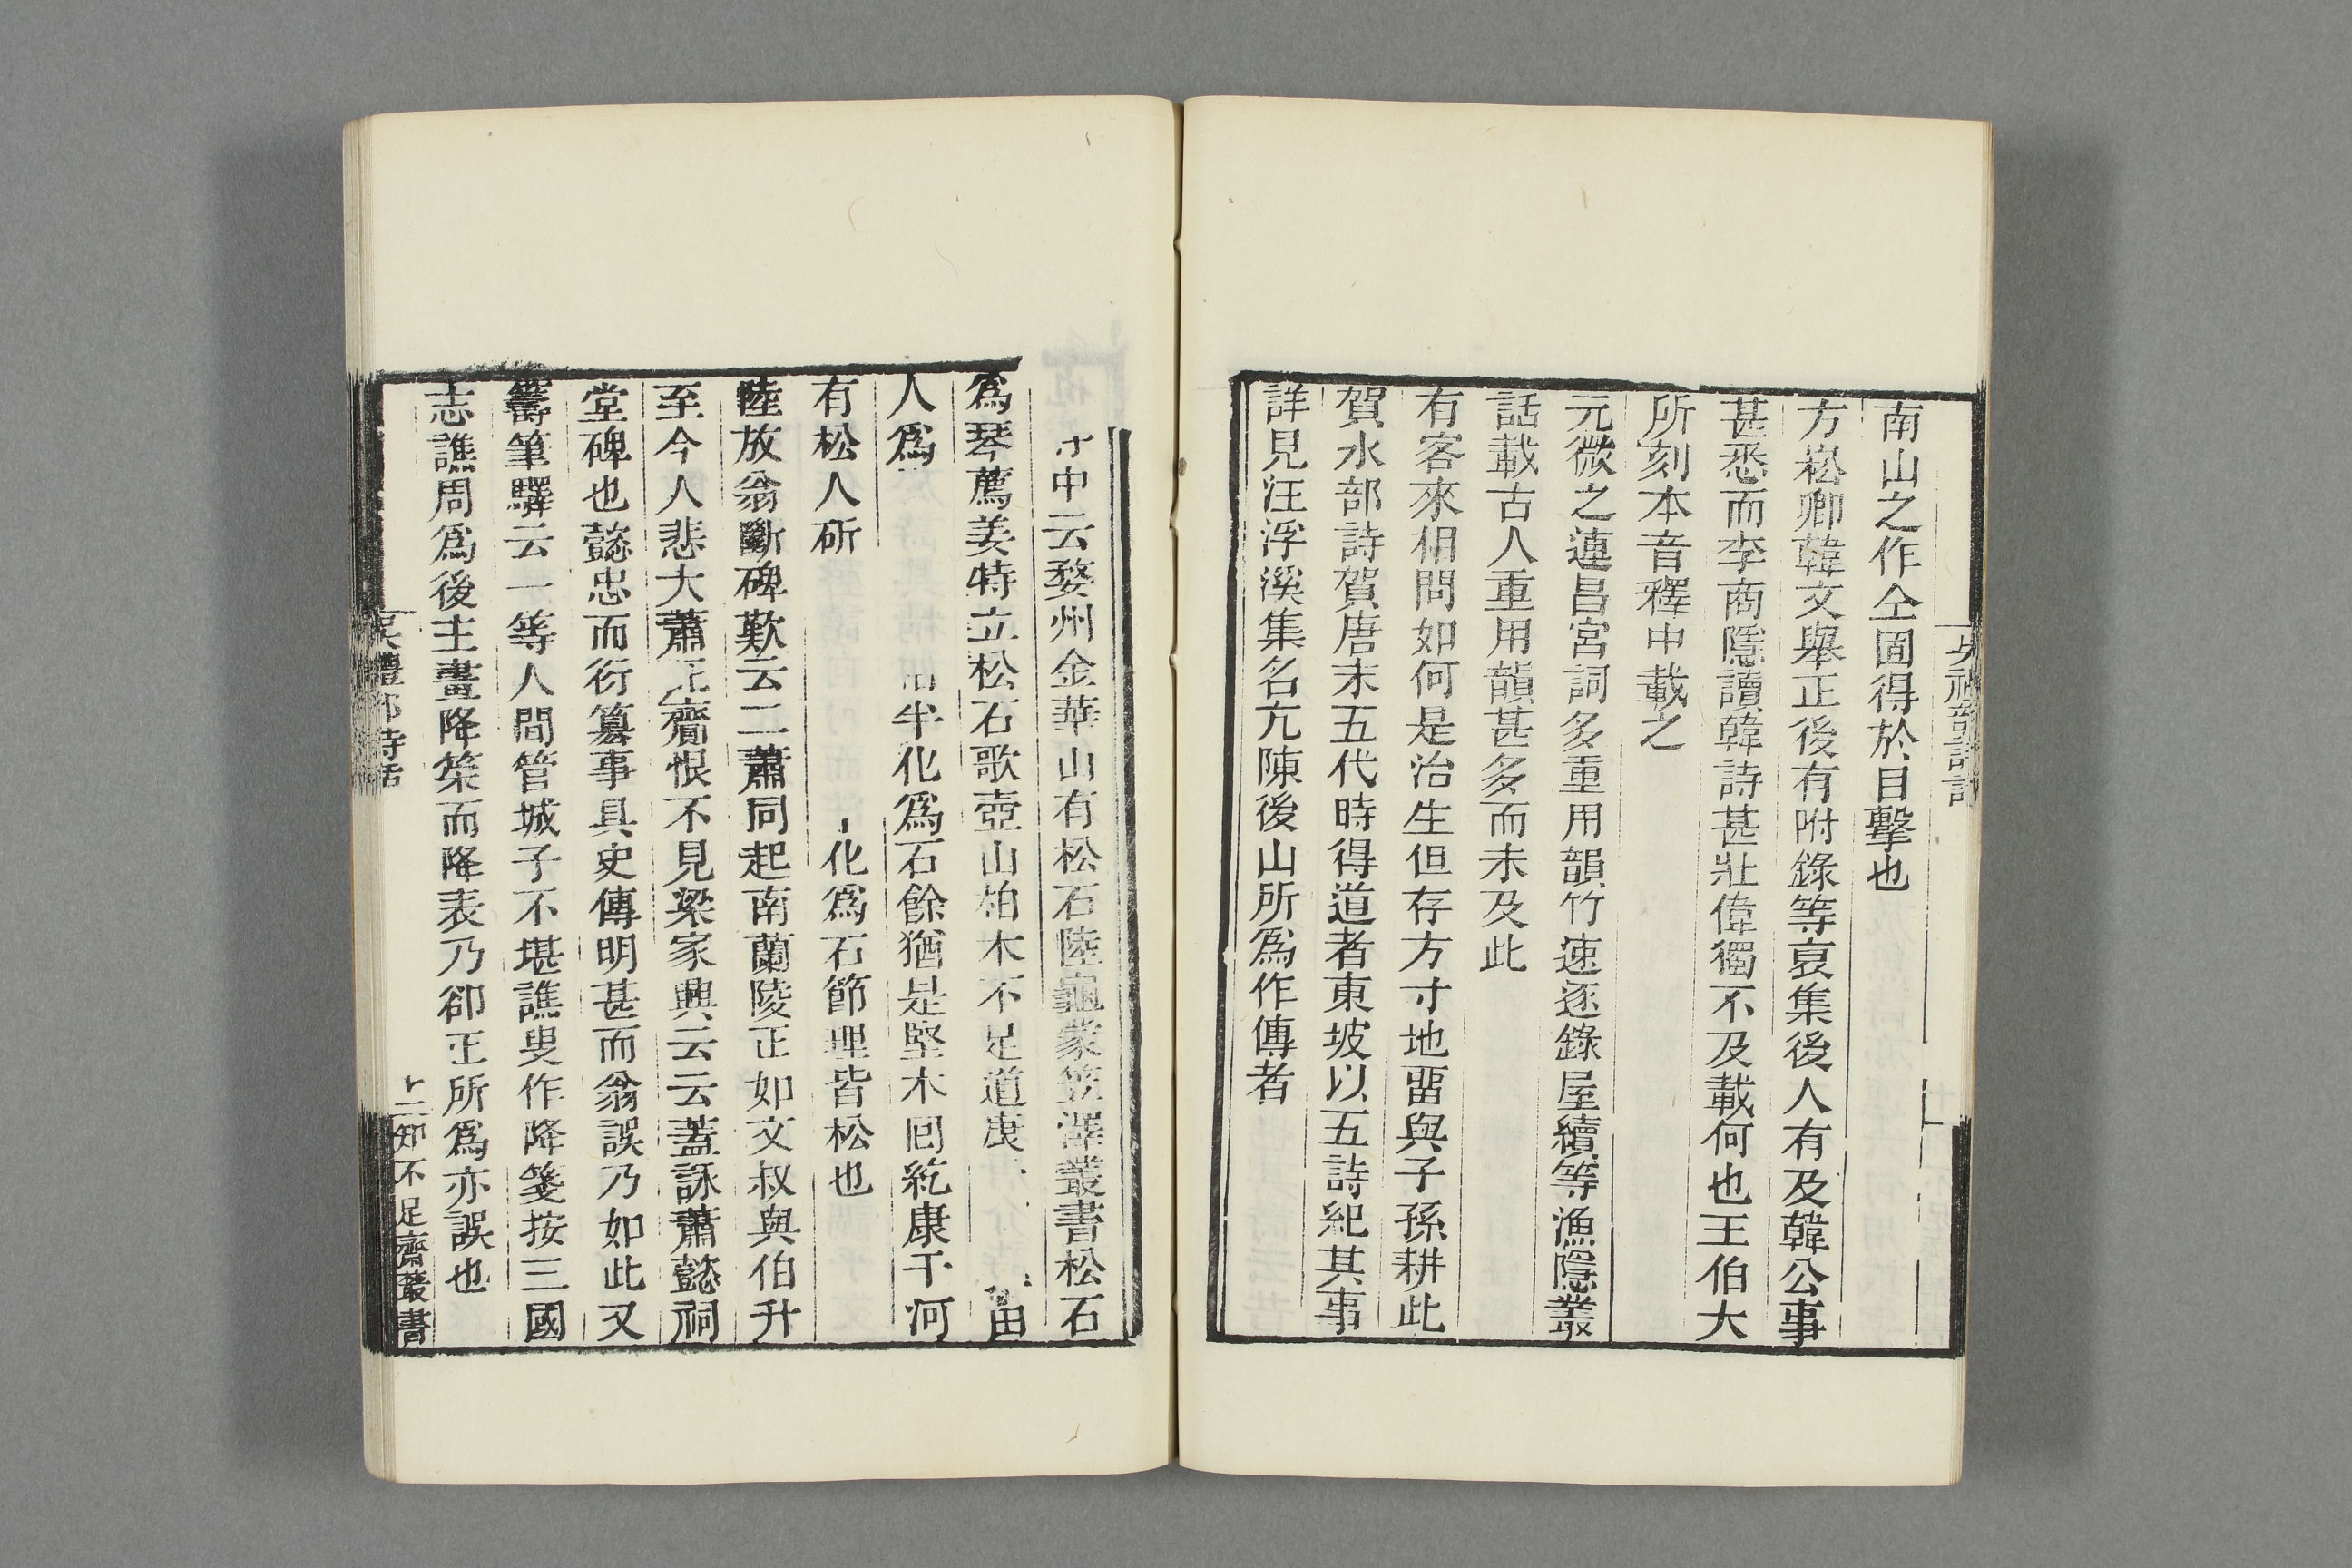 南山之作仝固得於目擊也
方崧卿韓文舉正後有附錄等裒集後人有及韓公事
甚悉而李商隱讀韓詩甚壯偉獨不及載何也王伯大
所刻本音釋中載之
元微之連昌宮詞多重用韻竹速逐錄屋續等漁隱叢
話載古人重用韻甚多而未及此
有客來相問如何是治生但存方寸地畱與子孫耕此
賀水部詩賀唐末五代時得道者東坡以五詩紀其事
詳見汪浮溪集名亢陳後山所爲作傳者
中云婺州金華山有松石陸龜蒙笠澤叢書松石
爲琴薦姜特立松石歌壺山柏木不足道康
人爲半化爲石餘猶是堅木回紇康干河
有松人斫化爲石節理皆松也
陸放翁斷碑歎云二蕭同起南蘭陵正如文叔與伯升
至今人悲大蕭死齎恨不見梁家興云云蓋詠蕭懿祠
堂碑也懿忠而衍簒事具史傳明甚而翁誤乃如此又
籌筆驛云一等人間管城子不堪譙叟作降箋按三國
志譙周爲後主畫降策而降表乃郤正所爲亦誤也
吳禮部詩話
知不足齋叢書